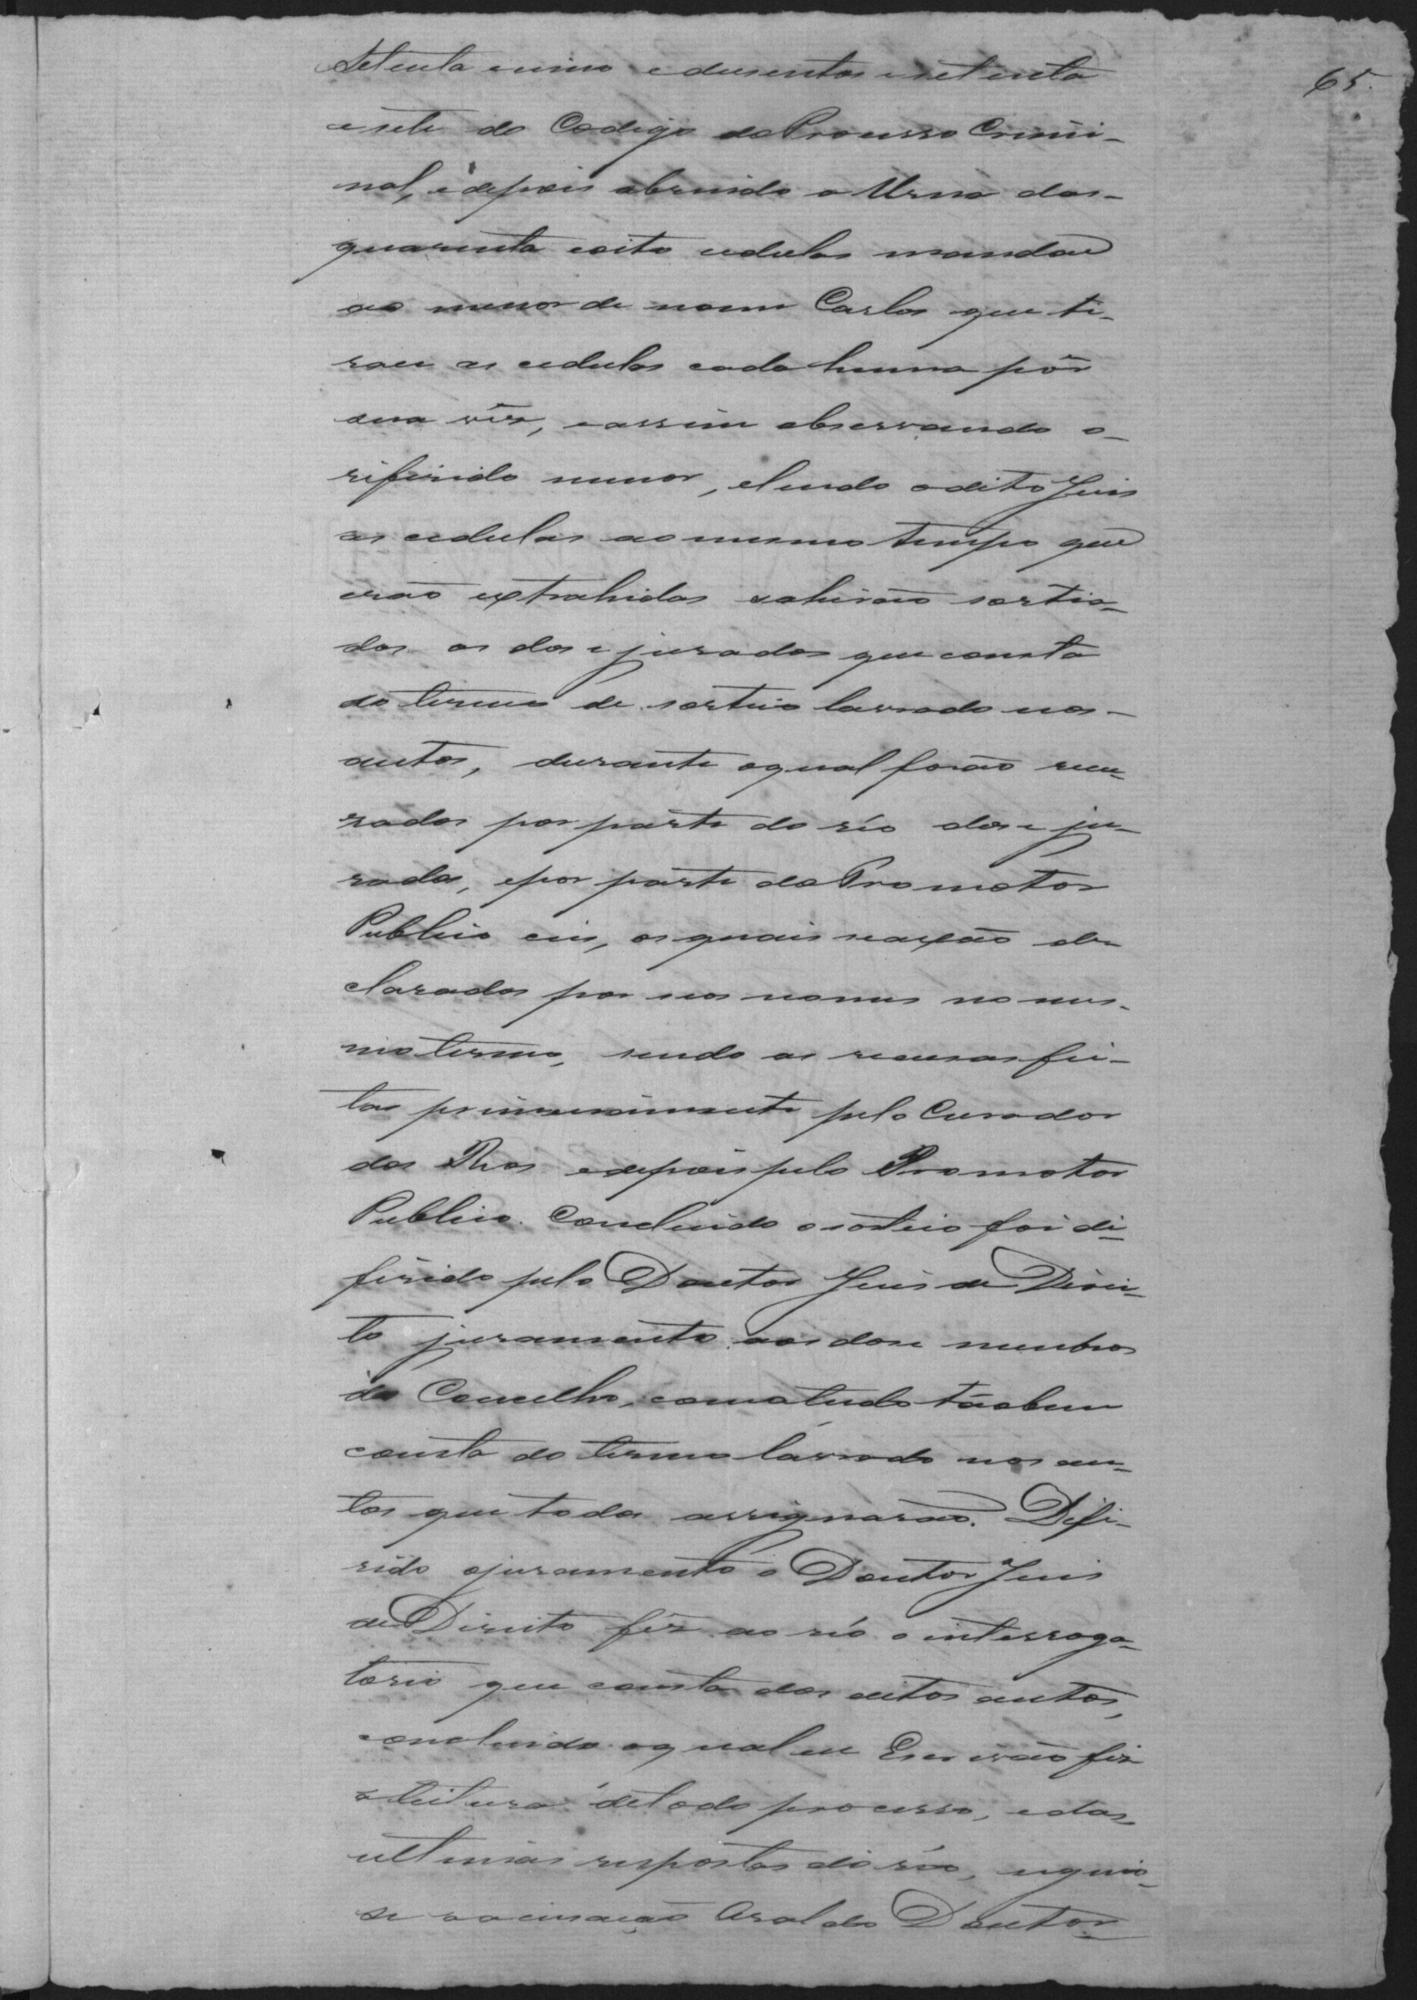 65.
setenta e cinco e dusentos e setenta
e sete do Codigo do Processo Crimi-
nal, e depois abrindo a Urna das-
quarenta e oito cedulas mandou
ao menor de nome Carlos que ti-
rou as cedulas cada huma pôr
sua vêz, e assim observando o-
rifirido menor, e lendo o dito Juis
as cedulas ao mesmo tempo que
erão extrahidas sahirão sortia-
dos os dose jurados que consta
do termo de sorteio lavrado nos-
autos, durante o qual forão recu-
zados por parte do réo dose ju-
rados, e por parte do Promotor
Publico seis, os quais vão de-
clarados por seos nomes no mes-
mo termo, sendo as recusas fei-
tas primeiramente pelo Curador
dos Reos e depois pelo Promotor
Publico. Concluido o sorteio foi di-
firido pelo Doutor Juis de Direi-
to juramento aos dose membros
do Concelho, como tudo tãobem
consta do termo lavrado nos au-
tos que todos assignarão. Difi-
rido o juramento o Doutor Juis
de Direito fêz ao réo o interroga-
torio que consta dos ditos autos,
concluido o qual eu Escrivão fiz
a leitura de todo processo, e das
ultimas respostas do réo, seguio-
se a acusação Oral do Doutor